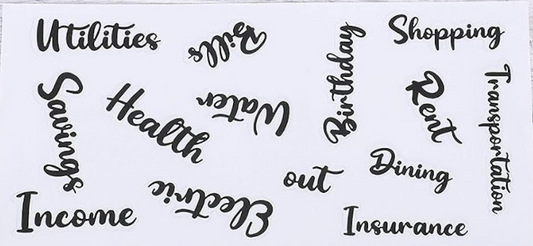 Utilities
Bills
Birthday
Shopping
Savings
Health
Water
Rent
Transportation
Electric
out
Dining
Income
Insurance